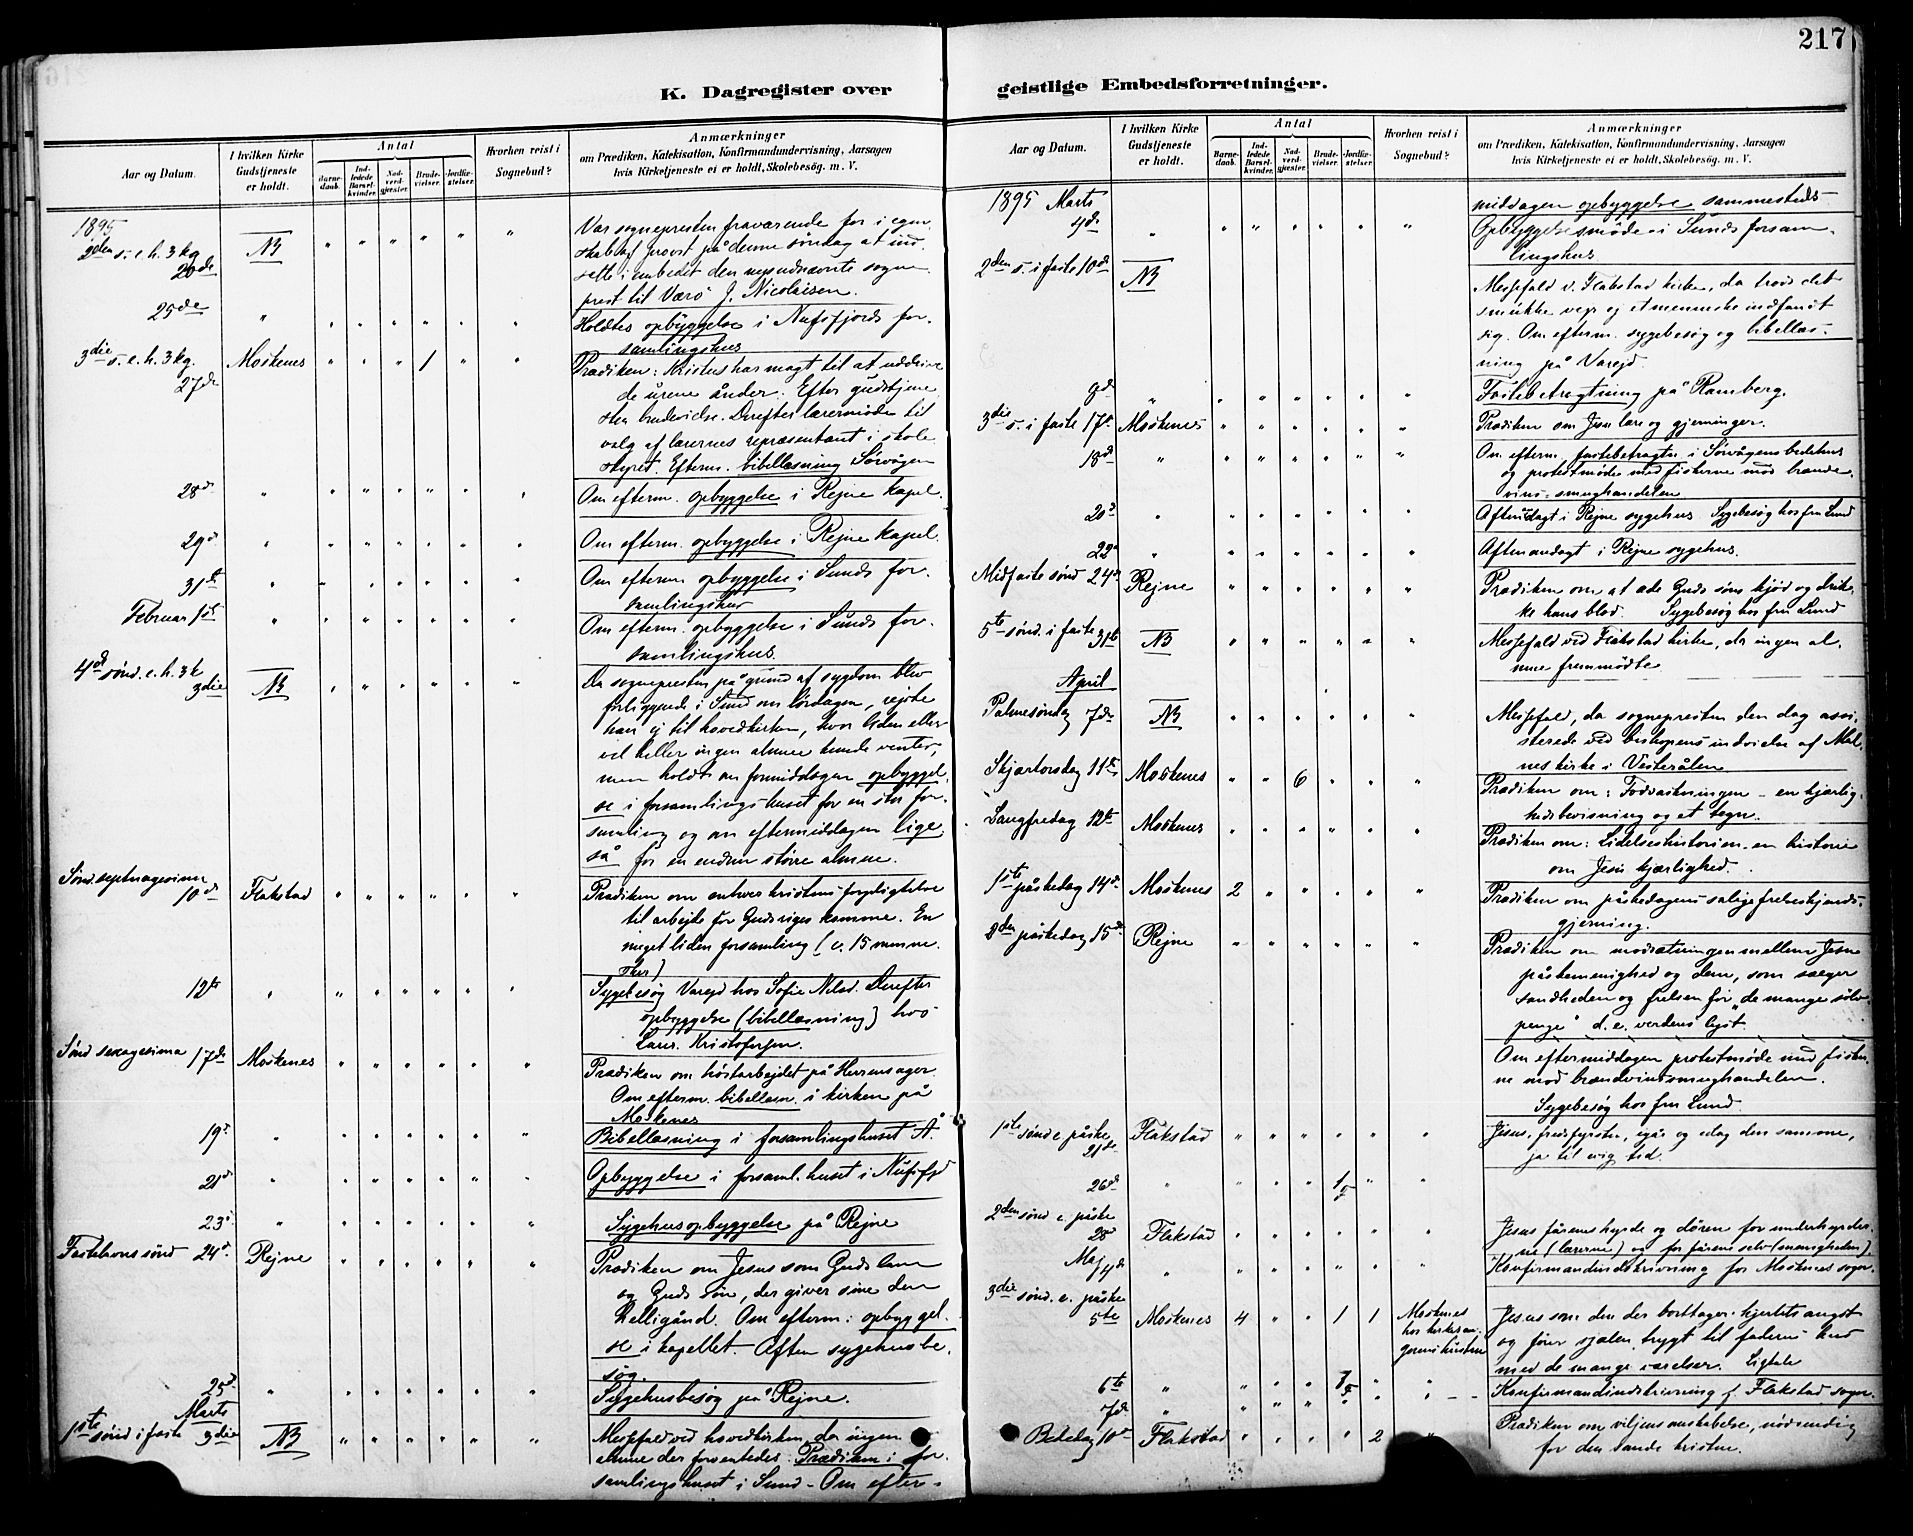 217
K. Dagregister over geistlige Embedsforretninger.
Aar og Datum.
I hvilken Kirke Gudstjeneste er holdt.
Antal
Barnedaab.
Indledede Barselkvinder.
Nadverdgjæster.
Brudevielser.
Jordfæstelser.
Hvorhen reist i Sognebud?
Anmærkninger
om Prædiken, Katekisation, Konfirmandundervisning, Aarsagen
hvis Kirketjeneste ei er holdt, Skolebesøg. m. V.
1895
2den s. e. h. 3 kg. 20de NB Var sognepresten fraværende for i egen-
skab af provst på denne søndag at ind-
sette i embedet den nyudnævnte sogne-
prest til Værö J. Nicolaisen.
25de Holdtes opbyggelse i Nufsfjords for-
samlingshus
3die s. e. h. 3 kg. 27de Moskenes 1 Prædiken: Kristus har magt til at uddrive
de urene ånder. Efter gudstjene-
sten brudevielse. Derefter lærermøde til
valg af lærernes repræsentant i skole-
styret. Efterm. bibellæsning Sørvågen
28de Om efterm. opbyggelse i Rejne kapel.
29de Om efterm. opbyggelse i Rejne kapel.
31te Om efterm. opbyggelse i Sunds for-
samlingshus
Februar 1ste Om efterm. opbyggelse i Sunds for-
samlingshus
4de sønd. e. h. 3 k 3die NB Da sognepresten på grund af sygdom blev
forliggende i Sund om lørdagen, rejste
han ej til hovedkirken, hvor liden eller
vel heller ingen almue kunde ventes,
men holdt om formiddagen opbyggel-
se i forsamlingshuset for en stor for-
samling og om eftermiddagen lige-
så for en endnu større almue.
Sønd. septuagesima 10de Flakstad Prædiken om enhver kristens forpligtelse
til arbejde for Guds riges komme. En
meget liden forsamling (c. 15 menne-
sker)
12te Sygebesøg Varejd hos Sofie Nilsd. Derefter
opbyggelse (bibellæsning) hos
Laur. Kristofersen.
Sønd sexagesima 17de Moskenes Prædiken om høstarbejdet på Herrens ager.
Om efterm. bibellæsn. i kirken på
Moskenes
19de Bibellæsning i forsamlingshuset Å.
21de Opbyggelse i forsaml.huset i Nufsfjd
23de Sygehusopbyggelse på Rejne
Fastelavns sønd 24de Rejne Prædiken om Jesus som Guds lam
og Guds søn, der giver sine den
Helligånd. Om efterm: opbyggel-
se i kapellet. Aften sygehusbe-
søg.
25de Sygehusbesøg på Rejne.
Marts
1ste sønd i faste 3die NB Messefald ved hovedkirken, da ingen
almue der forventedes. Prædiken i for-
samlingshuset i Sund - Om efter-
Aar og Datum.
I hvilken Kirke Gudstjeneste er holdt.
Antal
Barnedaab.
Indledede Barselkvinder.
Nadverdgjæster.
Brudevielser.
Jordfæstelser.
Hvorhen reist i Sognebud?
Anmærkninger
om Prædiken, Katekisation, Konfirmandundervisning, Aarsagen
hvis Kirketjeneste ei er holdt, Skolebesøg. m. V.
1895 Marts
middagen opbyggelse sammesteds-
9de Opbyggelsesmøde i Sunds forsam-
lingshus
2den s. i faste 10de NB Messefald v. Flakstad kirke, da trods det
smukke vejr og et menneske indfandt
sig. Om efterm. sygebesøg og bibellæs-
ning på Varejd.
Fastebetragtning på Ramberg.
3die s. i faste 17de Moskenes Prædiken om Jesu lære og gjerninger.
18de Om efterm. fastebetragtn. i Sörvågens bedehus
og protestmöde med fiskerne mod brænde-
vins-smughandelen
20de Aftenandagt i Rejne sygehus Sygebesög hos fru Lund
22de Aftenandagt i Rejne sygehus.
Midfaste sønd 24de Rejne Prædiken om at æde Guds söns kjöd og drik-
ke hans blod. Sygebesög hos fru Lund
5te sønd. i faste 31te NB Messefald ved Flakstad kirke, da ingen al-
mue fremmödte
April
Palmesøndag 7de NB Messefald, da sognepresten den dag assi-
sterede ved biskopens indvielse af Mel-
nes kirke i Vesterålen
Skjærtorsdag 11te Moskenes 6 Prædiken om: Fodvaskningen - en kjærlig-
hedsbevisning og et tegn.
Langfredag 12te Moskenes Prædiken om: Lidelseshistorien en historie
om Jesu kjærlighed.
1ste påskedag 14de Moskenes 2 Prædiken om påskedagens salige frelseshjands-
gjerning.
2den påskedag 15de Rejne Prædiken om modsætningen mellem Jesu
påskemenighed og dem, som sælger
sandheden og frelsen for "de mange sölv-
penge" d.e. verdens lyst.
Om eftermiddagen protestmöde med fisker-
ne mod brændvinssmughandelen.
Sygebesög hos fru Lund.
1ste sønd e. påske 21de Flakstad Jesus, fredsfyrsten, igår og idag den samme,
ja til evig tid.
26de 1
2den sønd e. påske 28 Flakstad Jesus fårenes hyrde og dören for underhyrder-
ne (lærerne) og for fårene selv (menigheden)
Maj 4de Konfirmandindskrivning for Moskenes sogn.
3die sønd. e. påske 5te Moskenes 4 1 1 Moskenes
hos kirkesan-
gerens hustru
Jesus som den der borttager hjertets angst
og förer sjælen trygt til faderens hus
med de mange værelser. Ligtale
6te Konfirmandindskrivning f. Flakstad sogn.
7de
Bededag 10de Flakstad 2 Prædiken om viljens omskabelse, nødvendig
for den sande kristne.